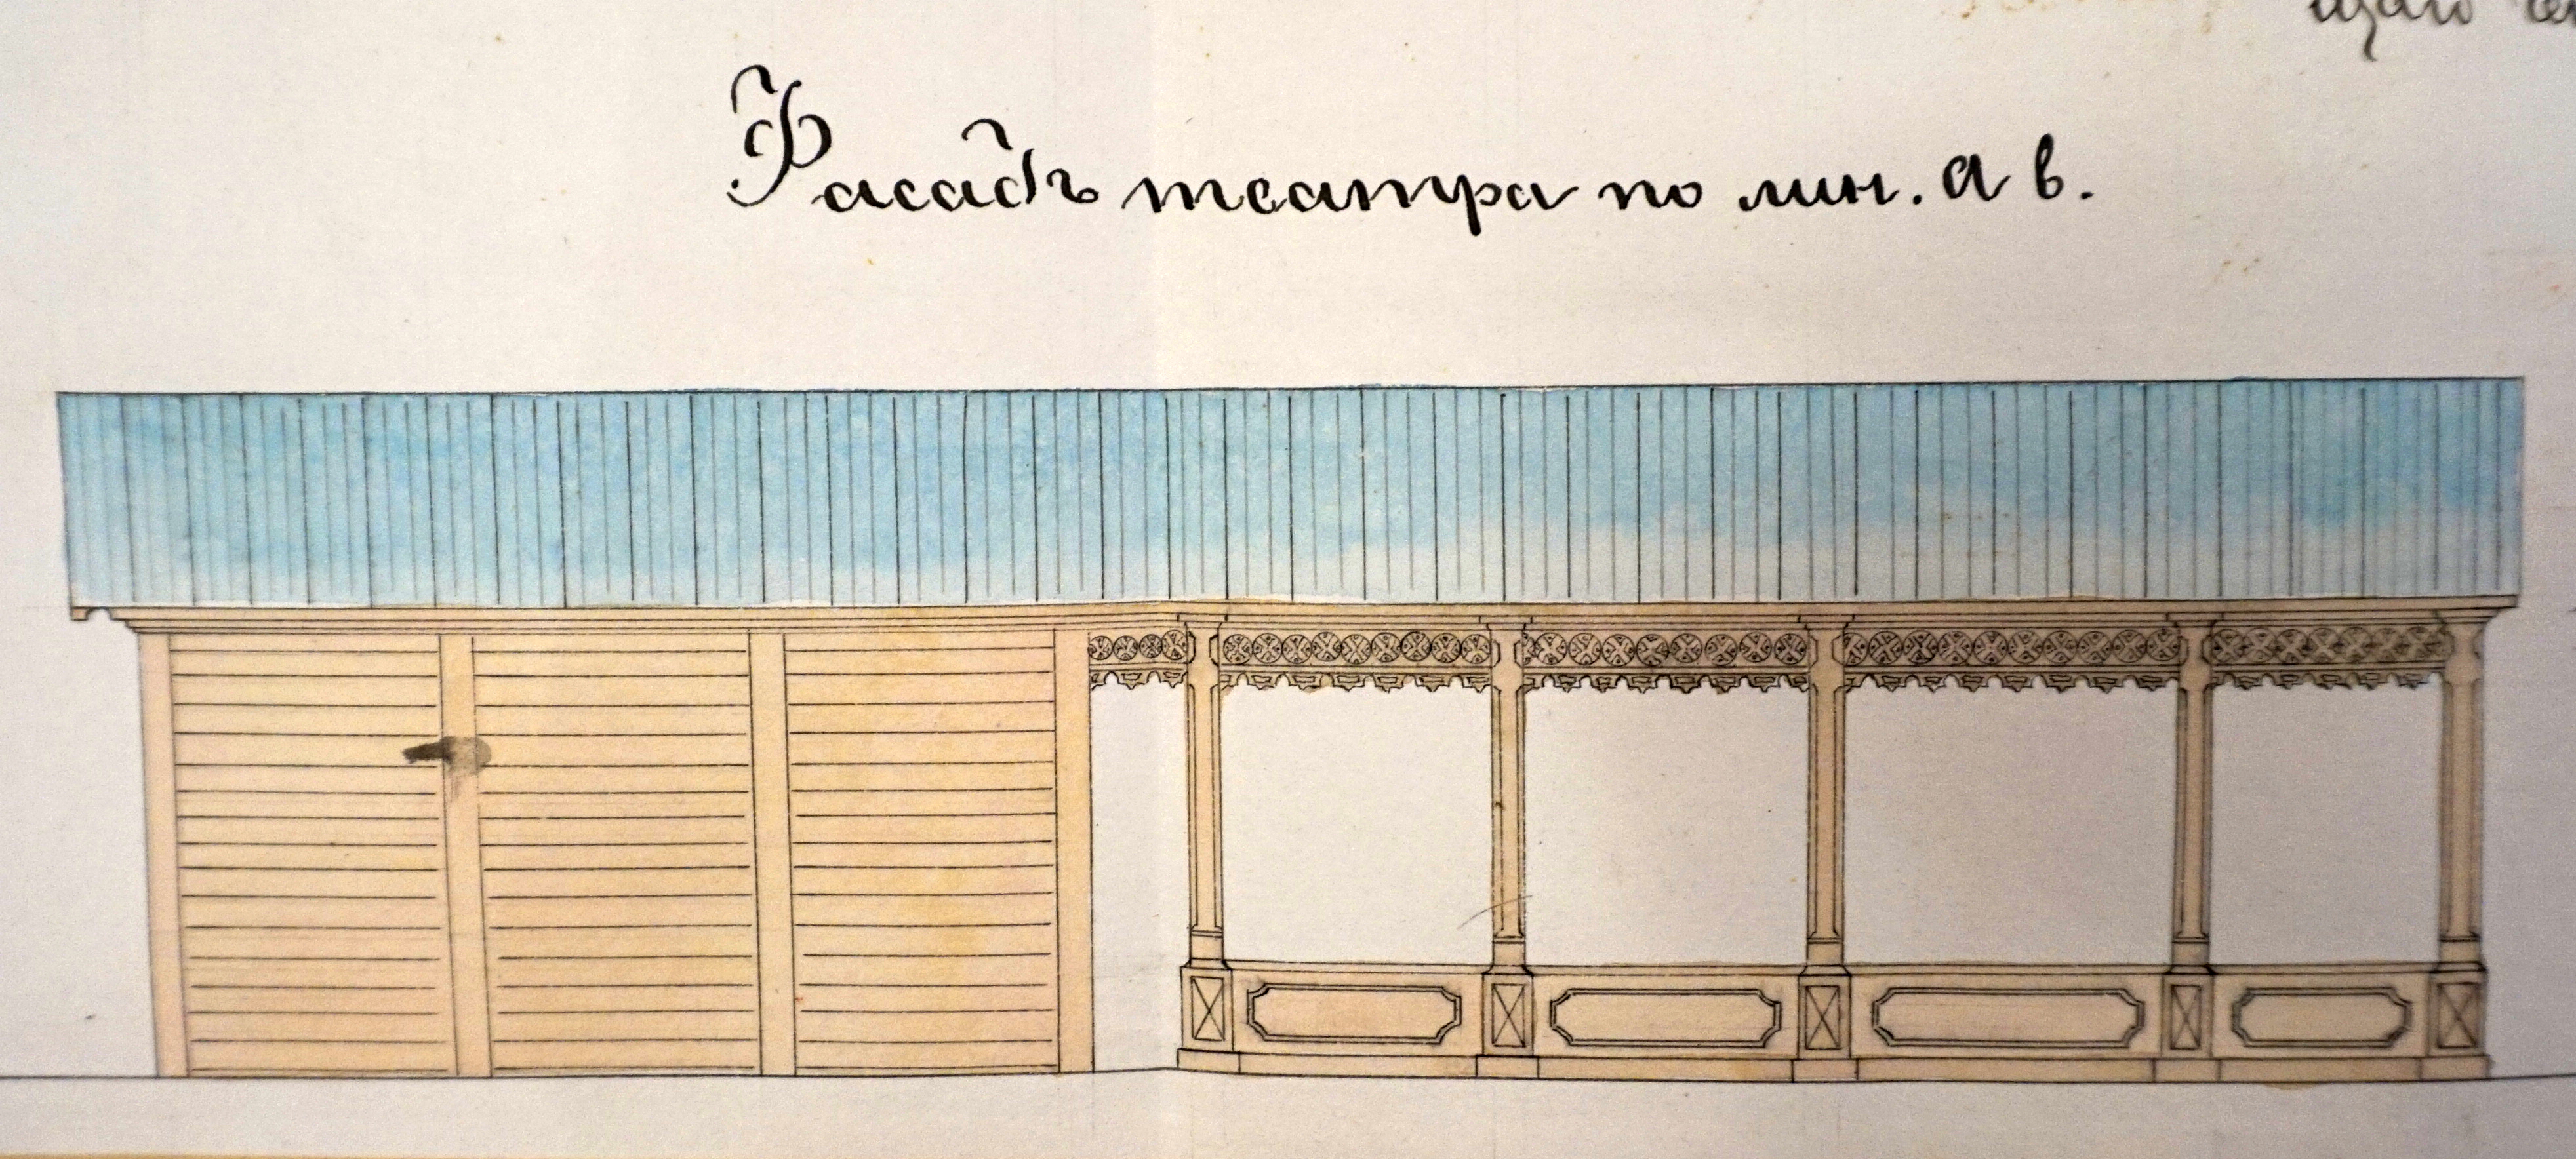 Фасадъ театра по лин. а в.